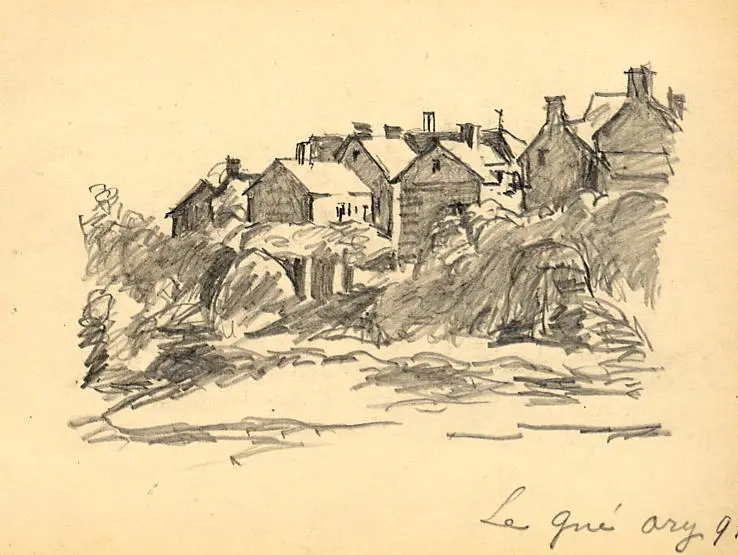 Le gué ory 9